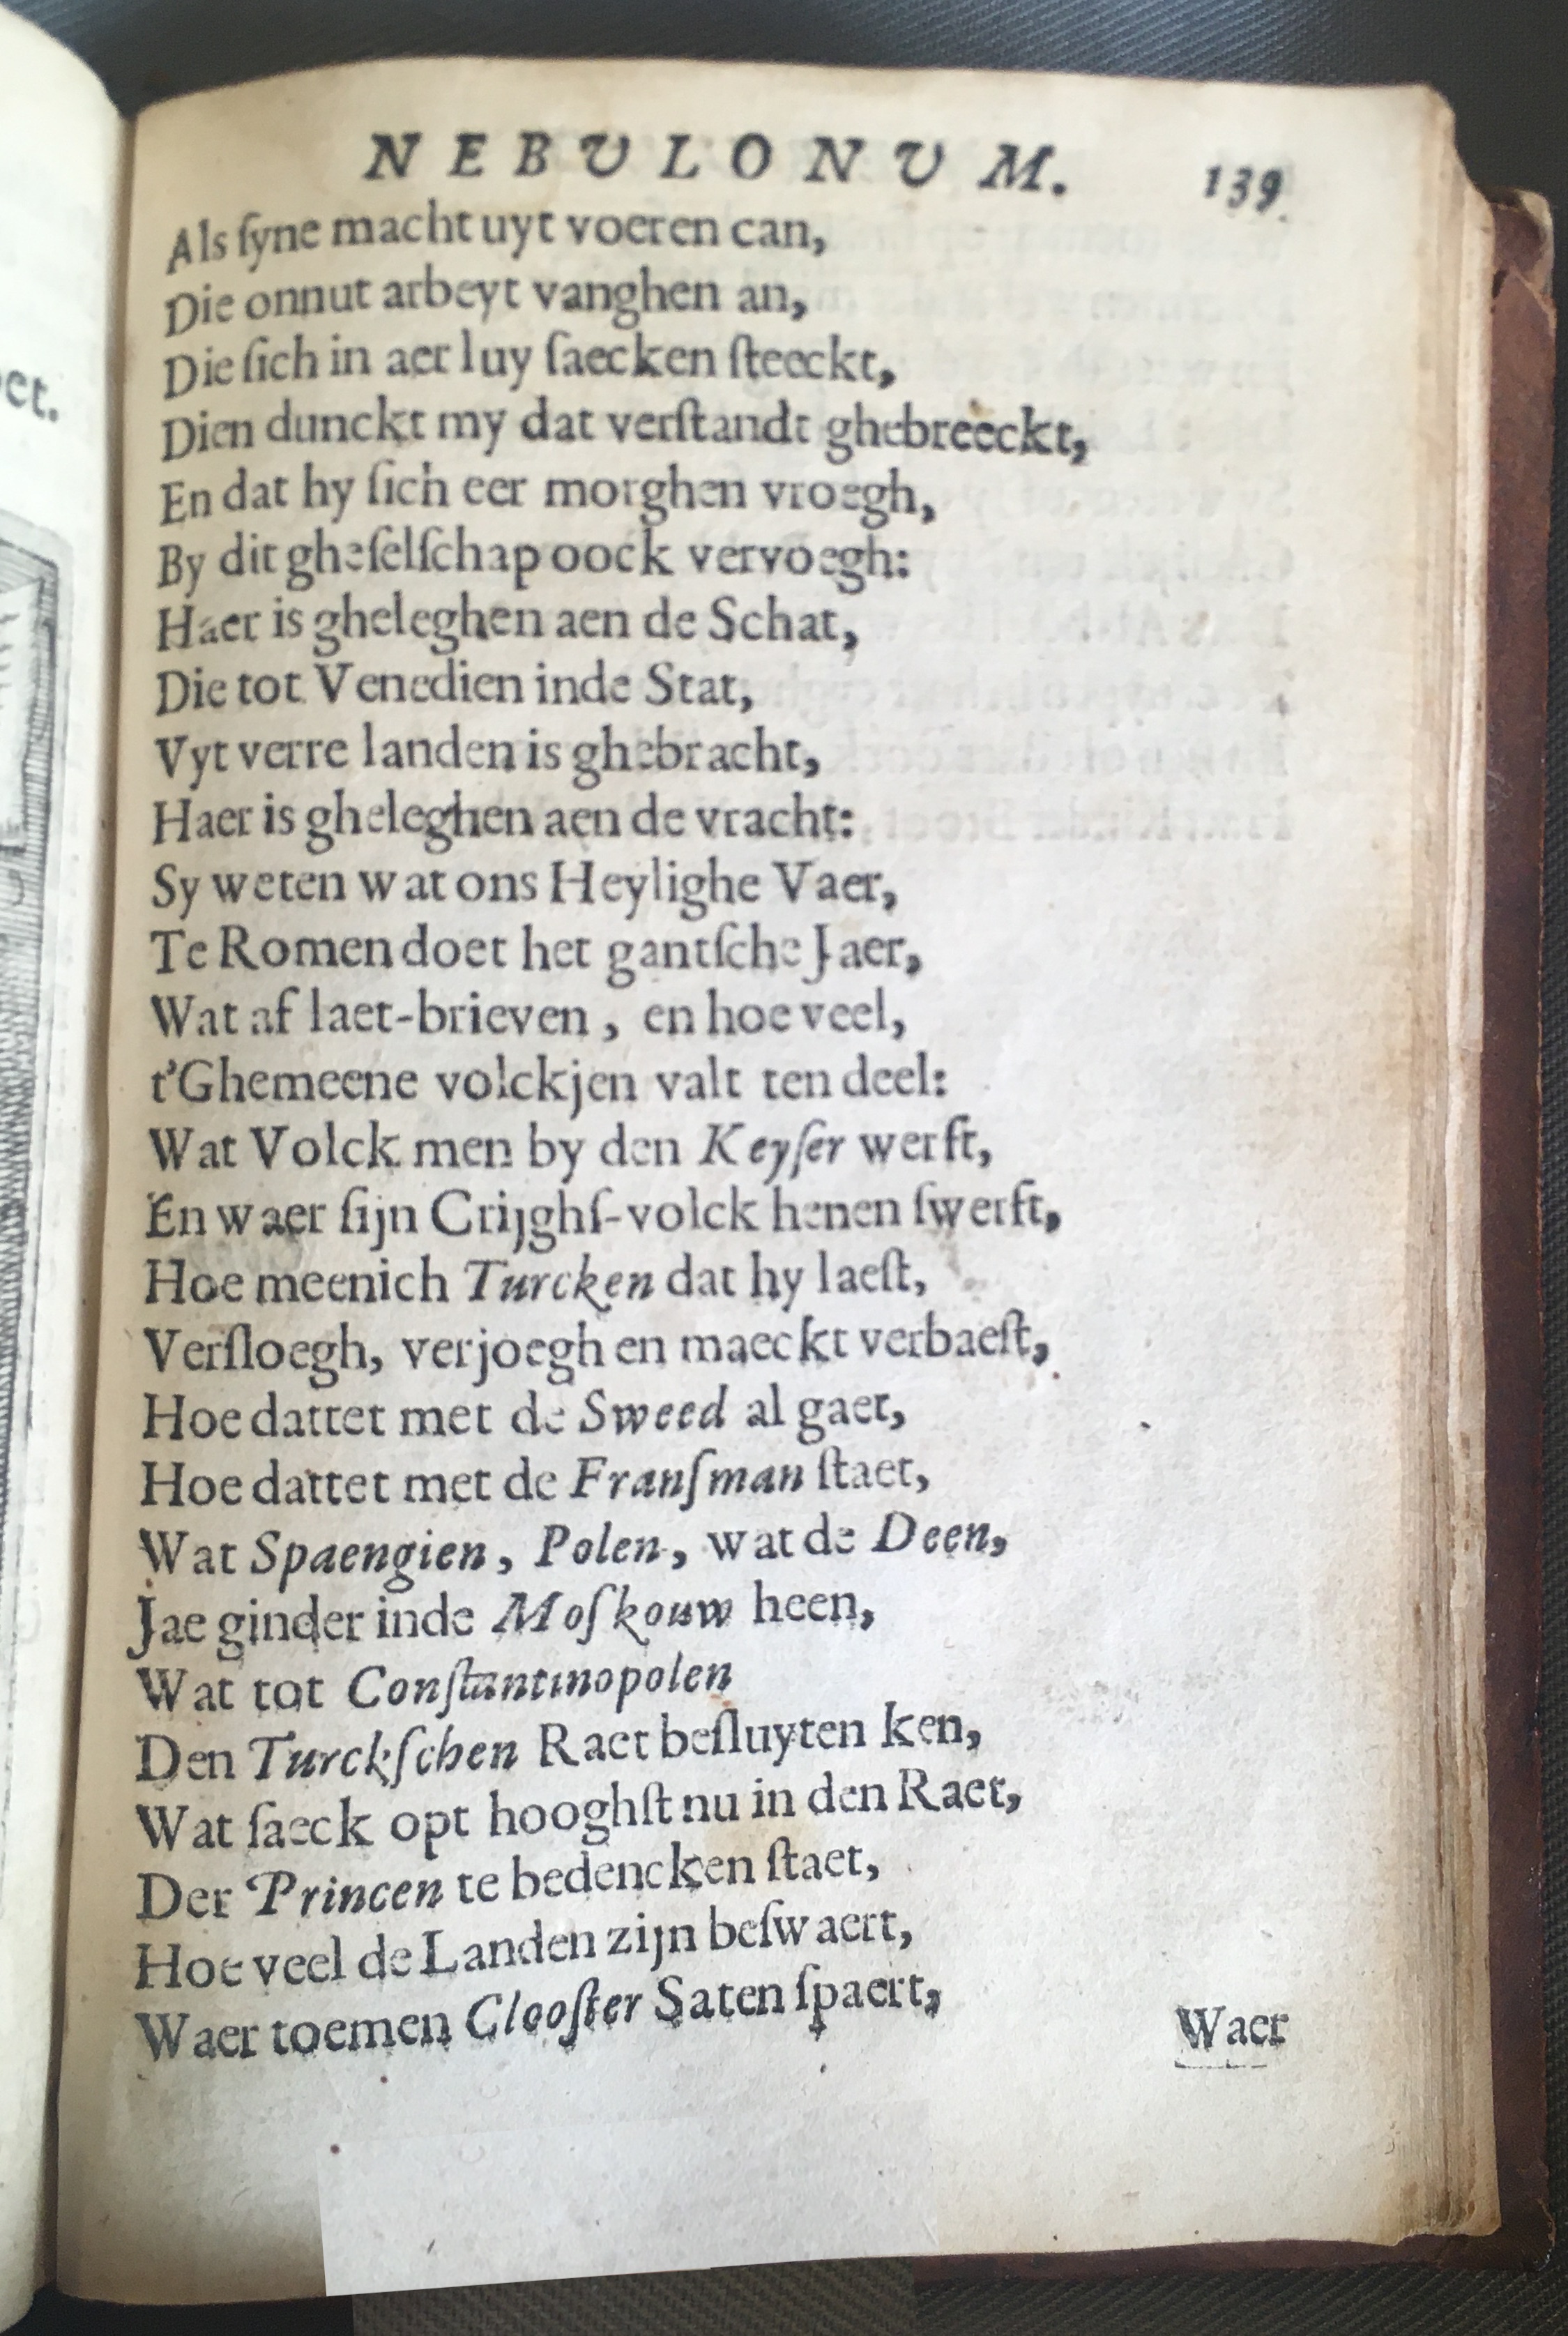 et.
NEBULONUM. 139.
Als ſyne macht uyt voeren can,
Die onnut arbeyt vanghen an,
Die ſich in aer luy ſaecken ſteeckt,
Dien dunckt my dat verſtandt ghebreeckt,
En dat hy ſich eer morghen vroegh,
By dit gheſelſchap oock vervoegh:
Haer is gheleghen aen de Schat,
Die tot Venedien inde Stat,
Vyt verre landen is ghebracht,
Haer is gheleghen aen de vracht:
Sy weten wat ons Heylighe Vaer,
Te Romen doet het gantſche Jaer,
Wat af laet-brieven, en hoe veel,
t'Ghemeene volckjen valt ten deel:
Wat Volck men by den Keyſer werft,
En waer ſijn Crijghſ-volck henen ſwerft,
Hoe meenich Turcken dat hy laeſt,
Verſloegh, verjoegh en maeckt verbaeſt,
Hoe dattet met de Sweed al gaet,
Hoe dattet met de Franſman ſtaet,
Wat Spaengien, Polen, wat de Deen,
Jae ginder inde Moſkouw heen,
Wat tot Conſtantinopolen
Den Turckſchen Raet beſluyten ken,
Wat ſaeck opt hooghſt nu in den Raet,
Der Princen te bedencken ſtaet,
Hoe veel de Landen zijn beſwaert,
Waer toemen Clooſter Saten ſpaert,
Waer